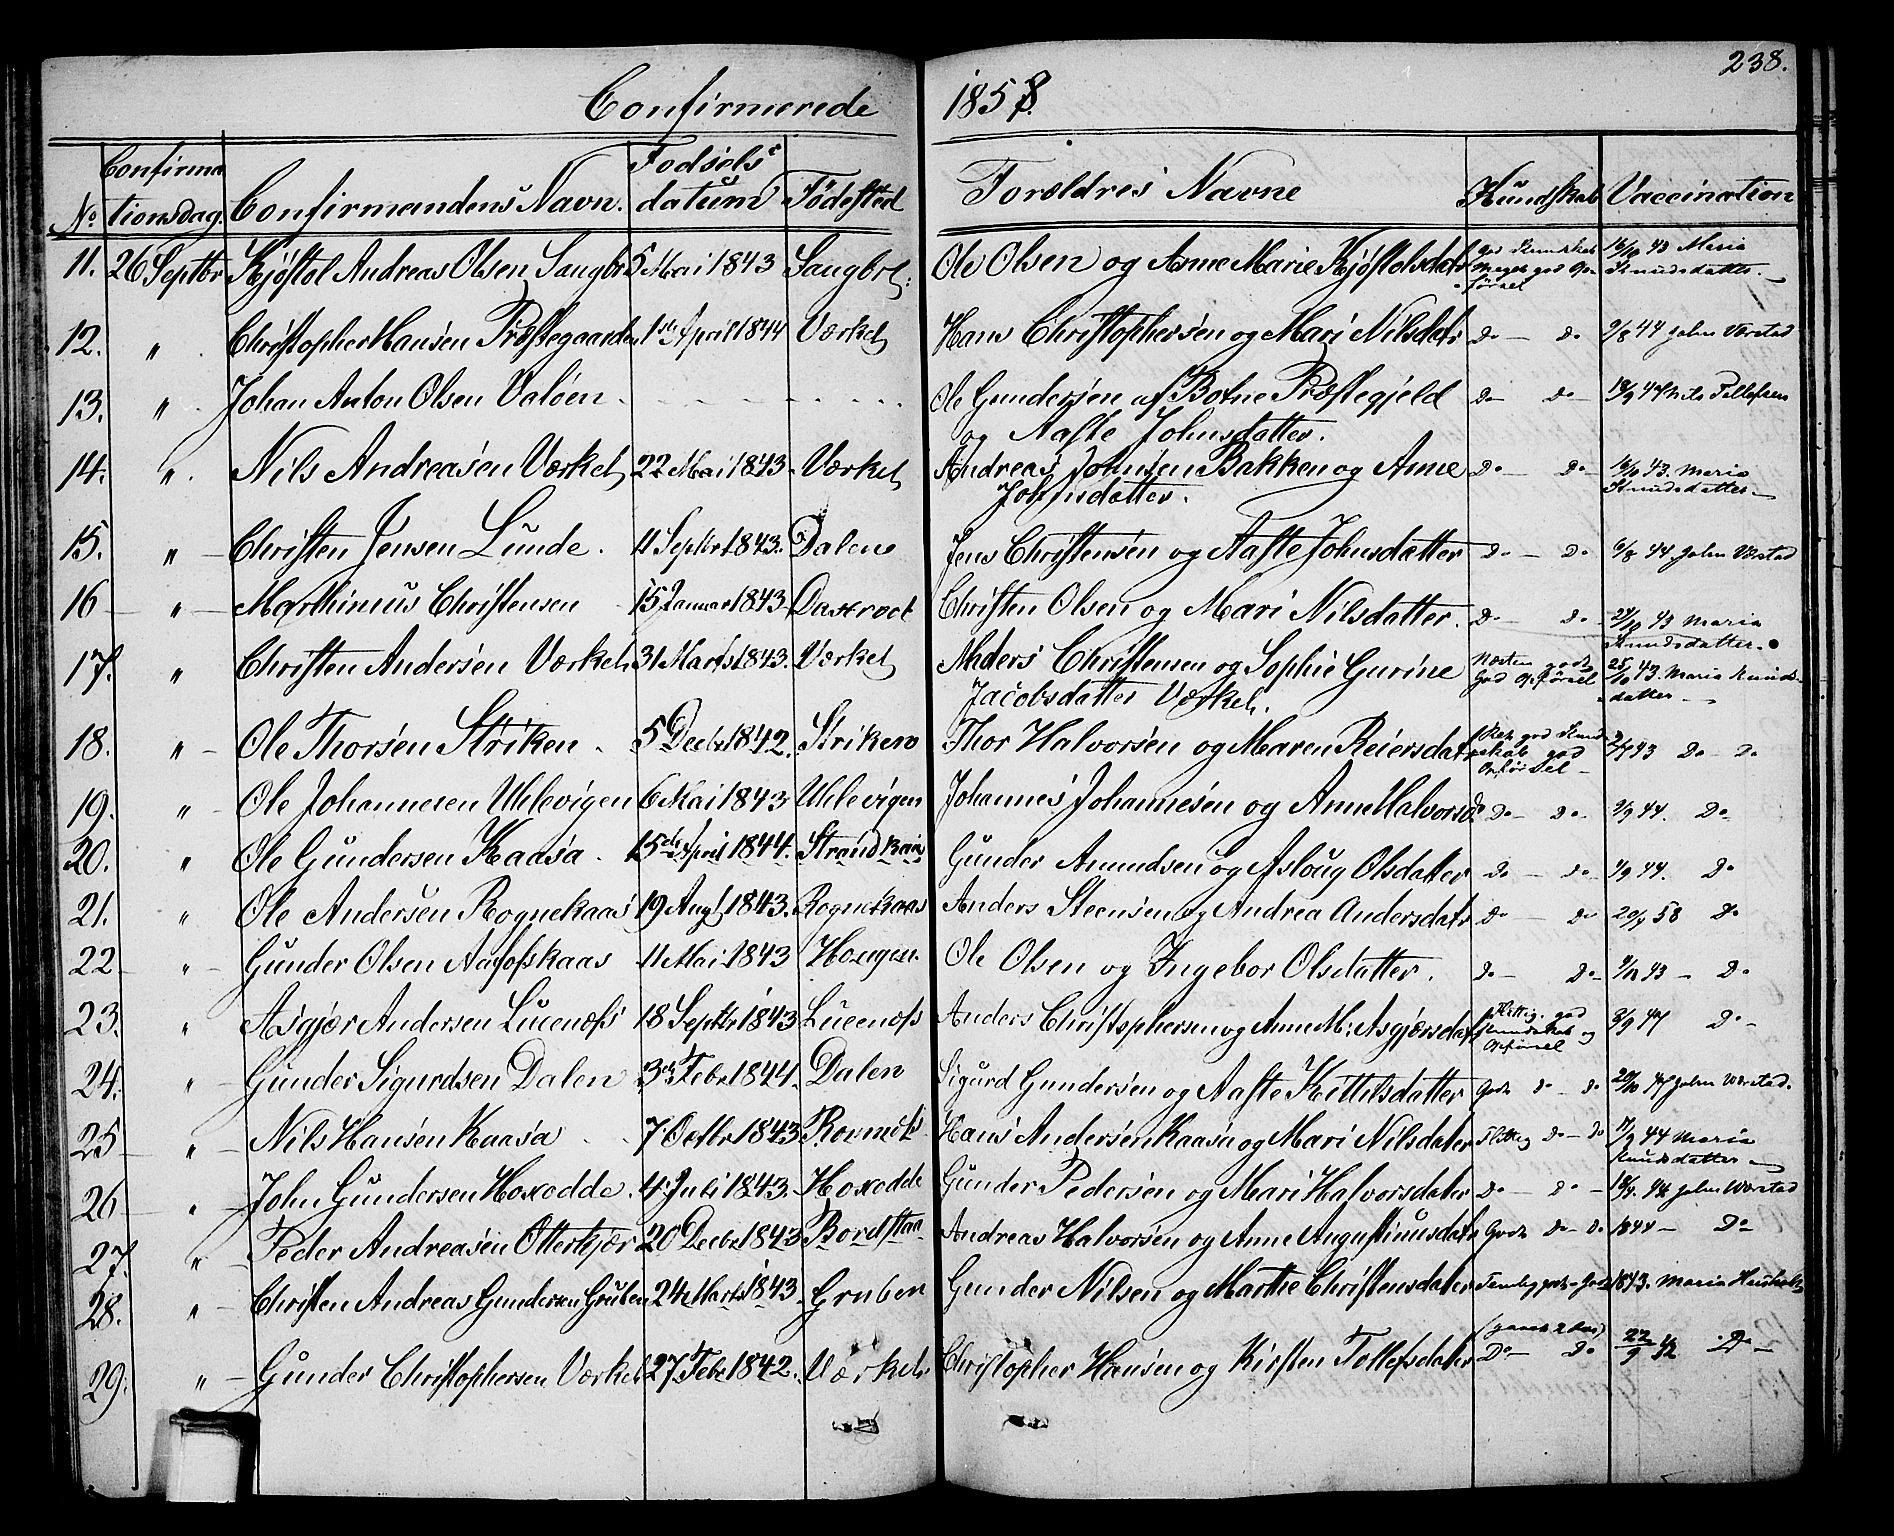 238.
Confirmerede 1858.
No. Confirmationsdag. Confirmandens Navn. Fødsels datum Fødested Forældres Navne Kundskab Vaccination
11. 26 Septbr Kjøstol Andreas Olsen 5 Mai 1843 Ole Olsen og Anne Marie Kjøstolsdatr god Kundskab 16/10 43 Maria
meget god Op- Knudsdatter.
førsel
12. " Christopher Hansen Præstegaarden 1ste April 1844 Værket Hans Christophersen og Mari Nilsdatr Do - Do 9/8 44 John Værstad
13. " Johan Anton Olsen Valøen Ole Gundersen af Botne Præstegjeld Do - Do 44 Nils Tellefsen
og Aaste Johnsdatter.
14. " Nils Andreasen Værket 22 Mai 1843 Værket Andreas Johnsen Bakken og Anne Do - Do 16/10 43. Maria
Johnsdatter. Knudsdatter
15. " Christen Jensen Lunde. 11 Septbr 1843. Dalene Jens Christensen og Aaste Johnsdatter Do - Do 6/8 44 John Værstad
16 " Marthinius Christensen 15 Januar 1843 Christen Olsen og Mari Nilsdatter. Do - Do 24/10 43 Maria
Knudsdatter.
17. " Christen Andersen Værket 31 Marts 1843. Værket Anders Christensen og Sophie Gurine Næsten godt 25/10 43. Maria Knuds-
Jacobsdatter Værket. God Opførsel datter
18. " Ole Thorsen Striken. 5 Decbr 1842. Striken Thor Halvorsen og Maren Reiersdatr god Kund- 43 Do - Do
skab god
Opførsel
19. " Ole Johannesen Uhlevigen 6 Mai 1843 Uhlevigen Johannes Johannesen og Anne Halvorsd. Do - Do 9/9 44. Do
20. " Ole Gundersen Kaasa. 15de April 1844. Gunder Amundsen og Asloug Olsdatter Do - Do 9/9 44. Do
21. " Ole Andersen Rognekaas 19 Augt 1843. Rognekaas Anders Steensen og Andrea Andersdatr Do - Do 58 Do
22 " Gunder Olsen Aafoskaas 11 Mai 1843 Hougen. Ole Olsen og Ingebor Olsdatter. Do - Do 43 - Do
23. " Asgjær Andersen Lucenæs 18 Septbr 1843 Lucenæs Anders Christophersen og Anne M: Asgjærsdatr Flittig. god 47 Do
Kundskab og
Opførsel
24. " Gunder Sigurdsen Dalen 3die Febr 1844. Dalen Sigurd Gundersen og Aaste Kittilsdatter Godt Do - Do 47 John Værstad.
25 " Nils Hansen Kaasa 7 Octbr 1843 Hans Andersen Kaasa og Mari Nilsdater Flittig Do - Do 44 Maria
Knudsdatter
26 " John Gundersen Hoxodde. 4 Juli 1843. Hoxodde Gunder Pedersen og Mari Halvorsdater Do - Do - John Værstad
27. " Peder Andreasen Otterkjær 20 Decbr 1843 Bordstaa Andreas Halvorsen og Anne Augustinusdatr Godt Do - Do 1844 - Do
28. " Christen Andreas Gundersen Gruben 24 Marts 1843. Gruben Gunder Nilsen og Marthe Christensdater God 1843. Maria
29. " Gunder Christophersen Værket 27 Febr 1842. Værket Christopher Hansen og Kirsten Tollefsdater Do - Do 22/9 42 Do